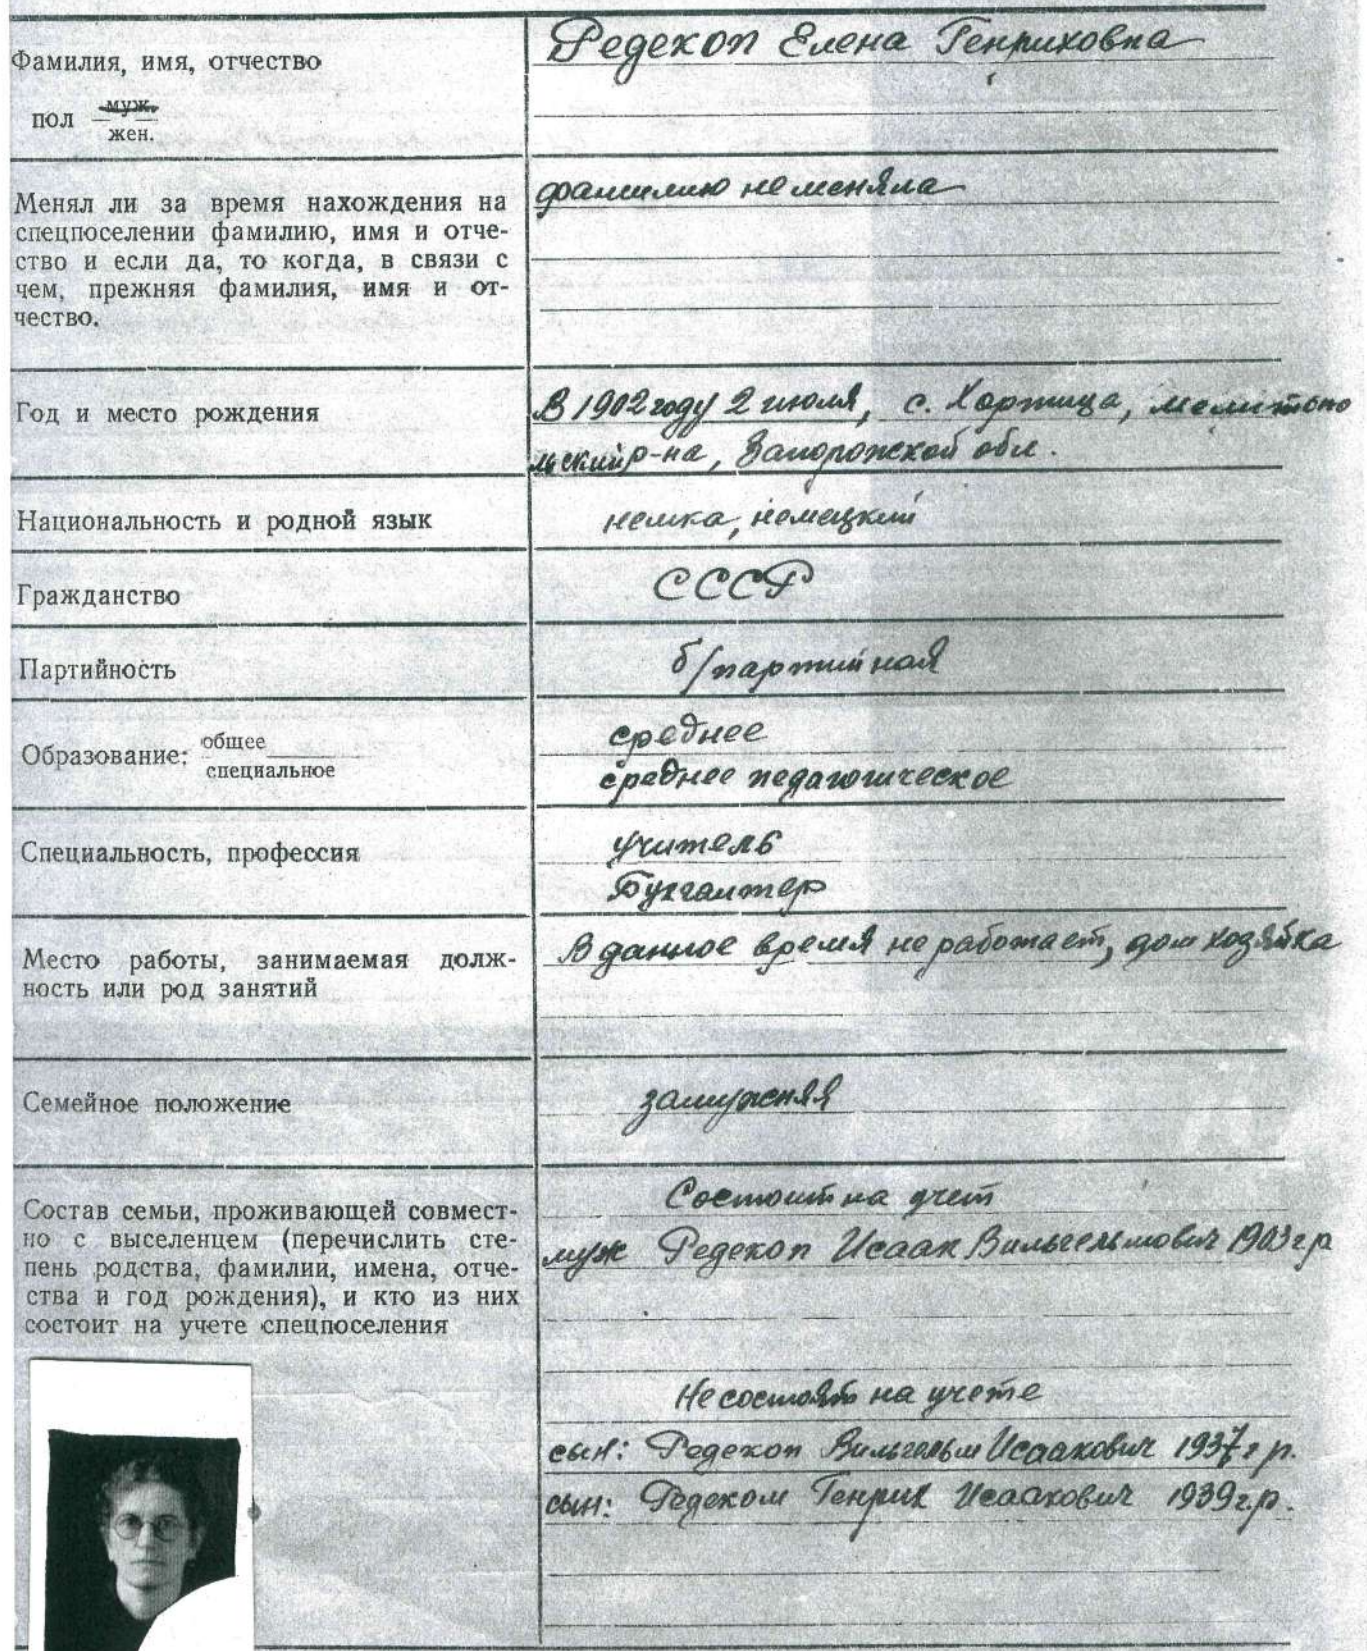 Фамилия, имя, отчество
Редекоп Елена Генриховна
пол муж.
жен.
Менял ли за время нахождения на
спецпоселении фамилию, имя и отче-
ство и если да, то когда, в связи с
чем, прежняя фамилия, имя и от-
чество.
фамилию не меняла
Год и место рождения
В 1902 году 2 июля, с. Хортица, мелитопо
льский р-на, Запорожской обл.
Национальность и родной язык
немка, немецкий
Гражданство
СССР
Партийность
б/партийная
Образование: общее
специальное
среднее
среднее педагогическое
Специальность, профессия
учитель
Бухгалтер
Место работы, занимаемая долж-
ность или род занятий
В данное время не работает, дом хозяйка
Семейное положение
замужняя
Состав семьи, проживающей совмест-
но с выселенцем (перечислить сте-
пень родства, фамилии, имена, отче-
ства и год рождения), и кто из них
состоит на учете спецпоселения
Состоит на учет
муж Редекоп Исаак Вильгельмович 1903 г.р
Не состоят на учете
сын: Редекоп Вильгельм Исаакович 1937 г р.
сын: Редеком Генрих Исаакович 1939 г.р.